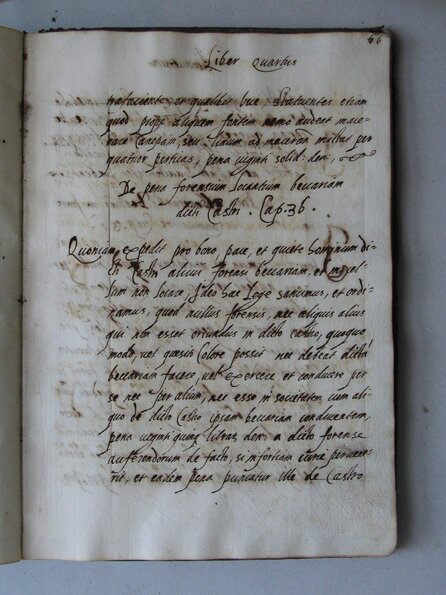 66
Liber Quartus
et qualibet vice, statuentes etiam
quod prope aliquem fontem nemo audeat mace-
rare seu linum ad macerandum mittat per
quatuor perticas, pena viginti solid: den,
De pena forensium locantium beccariam
dicti Castri. Cap. 36.
Quoniam expedit pro bono pace, et quiete hominum di-
cti Castri alicui forensi beccariam, et
non locare, Ideo hac lege sancimus, et ordi-
namus, quod nullus forensis, nec aliquis alius
qui non esset oriundus in dicto castro, quoquo
modo, vel quesito colore possit nec debeat dicta
beccariam facere, vel exercere et conducere per
se nec per alium, nec esse in societatem cum ali-
quo de dicto Castro ipsam beccariam conducentem,
pena viginti quinque libras, den: a dicto forense
auferendorum de facto, si in fortiam curie pervene-
rit, et eadem pena puniatur ille de Castro